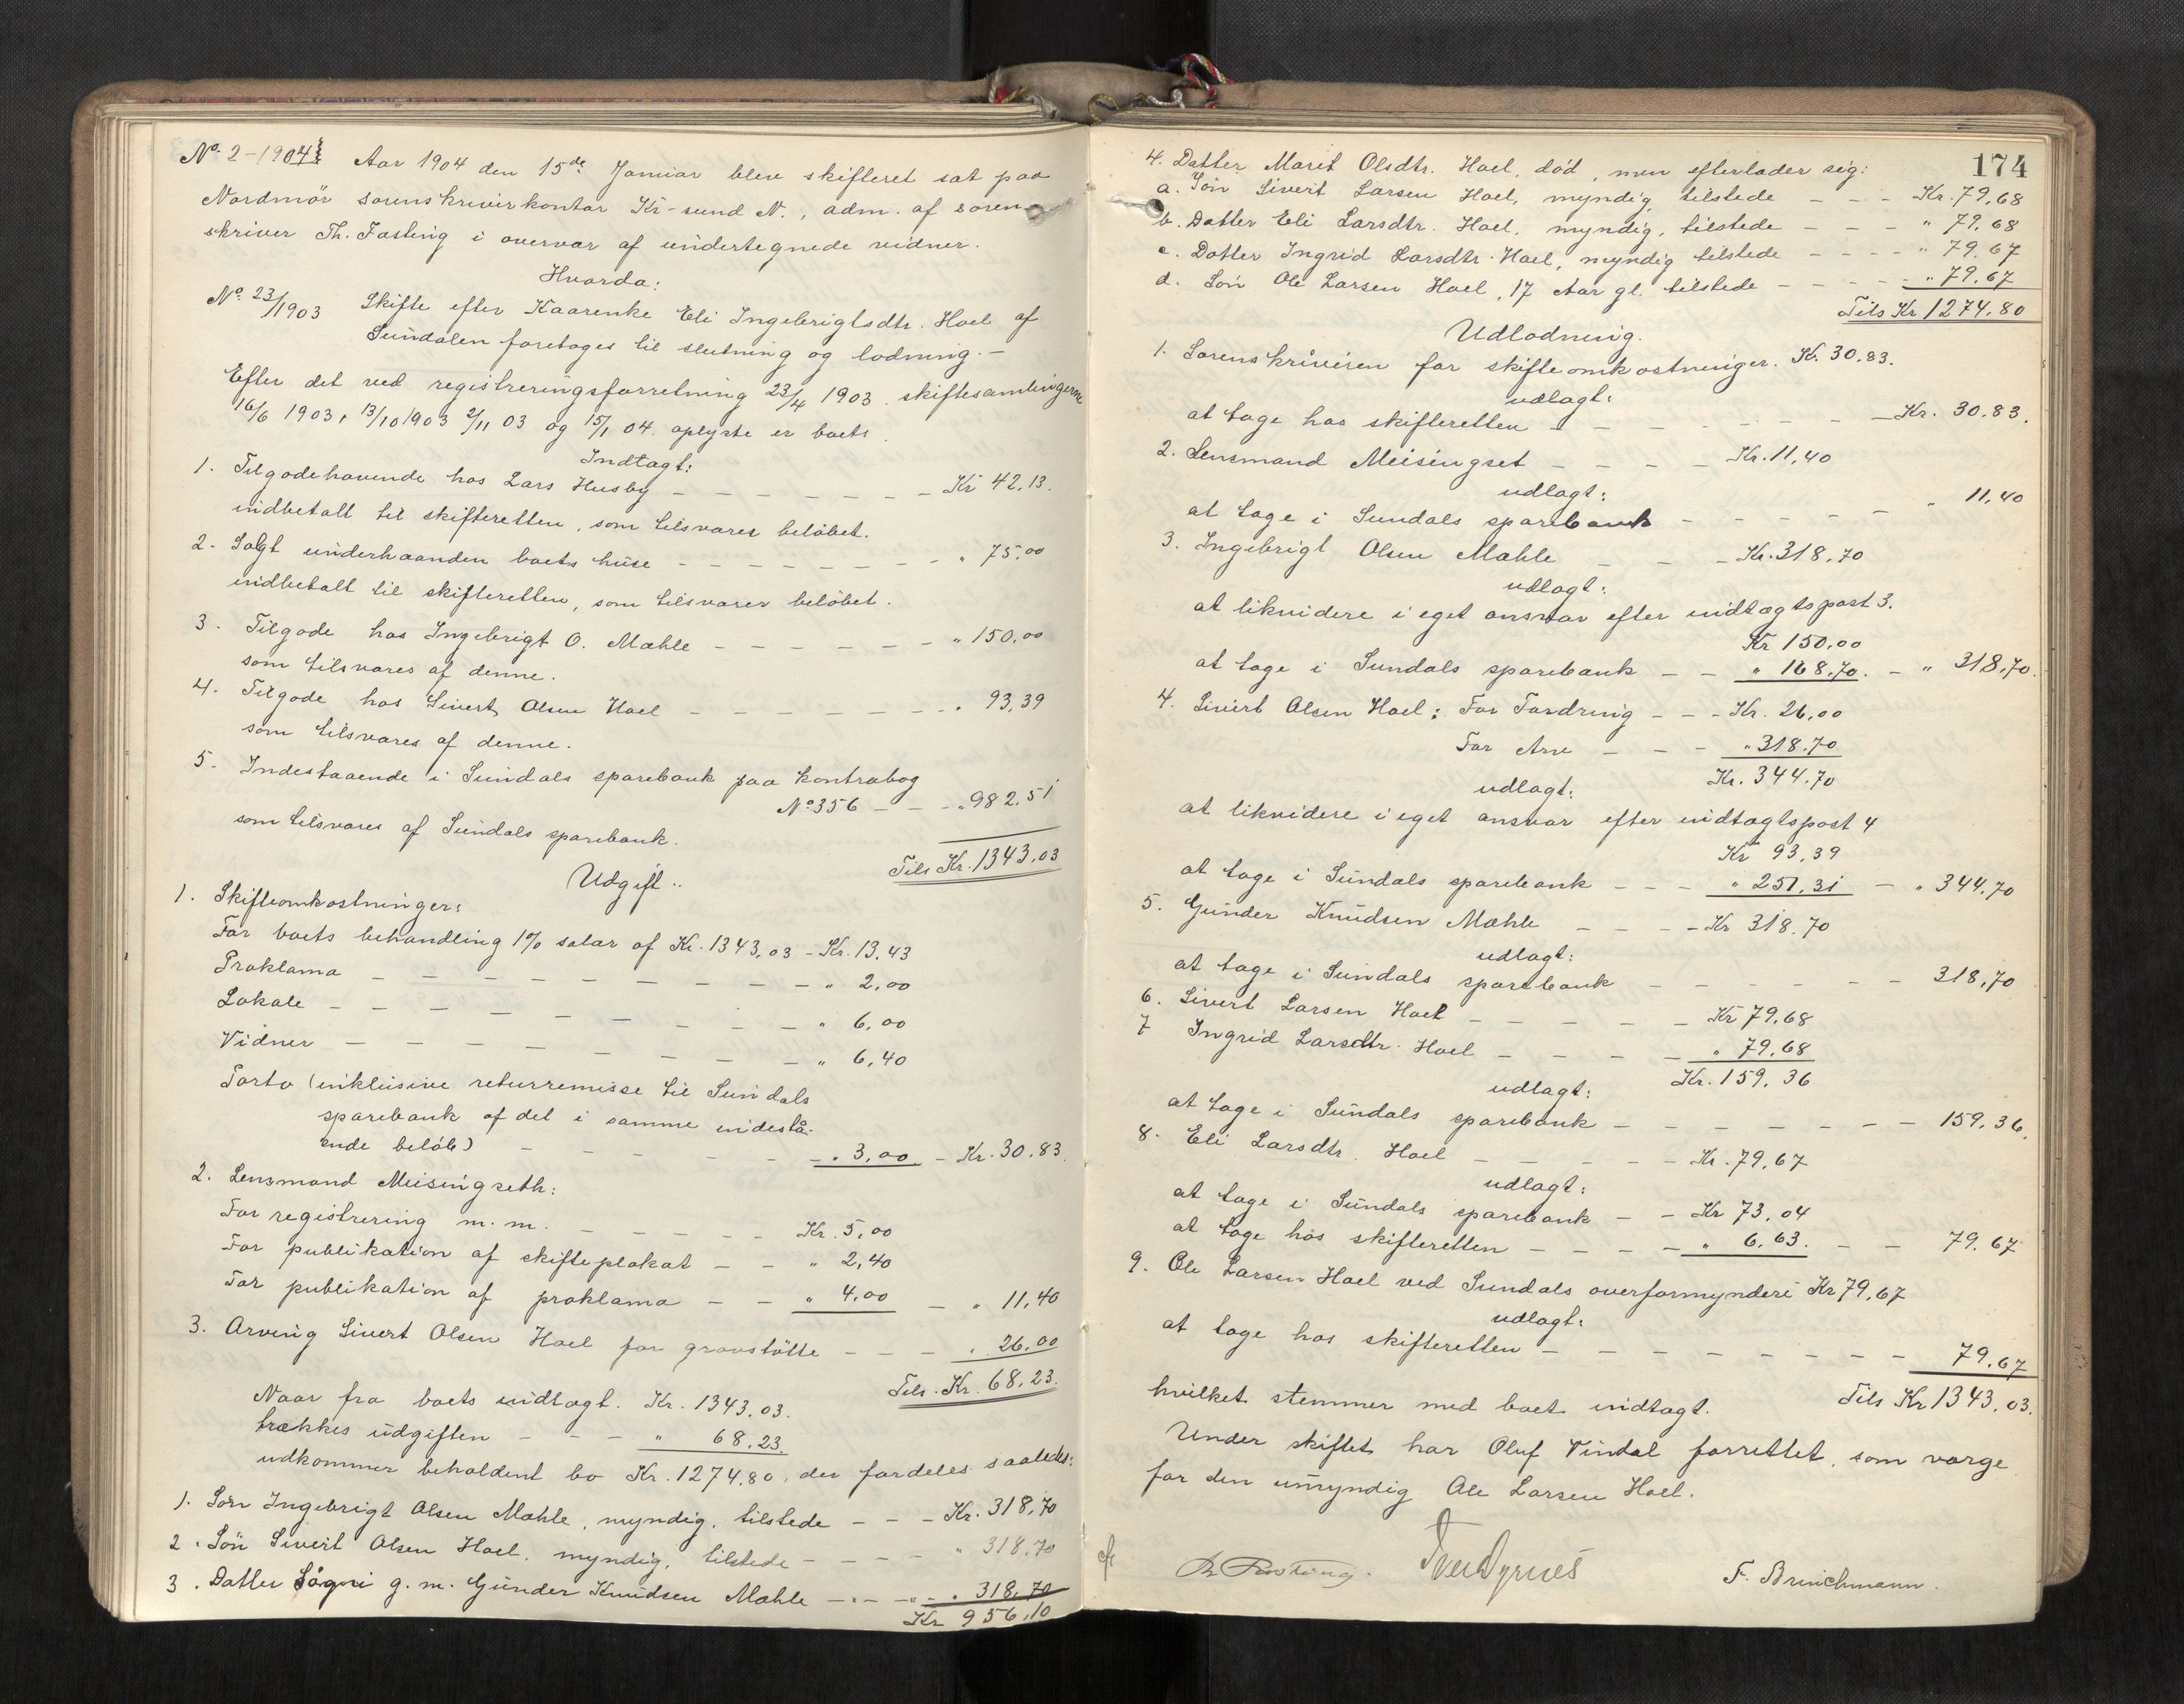 No. 2-1904 Aar 1904 den 15de Januar blev skifteret sat paa
Nordmör sorenskriverkontor Kr-sund N., adm. af soren-
skriver Th. Fasting i overvær af undertegnede vidner.
Hvorda:
No. 23/1903 Skifte efter Kaarenke Eli Ingebrigtsdtr. Hoel af
Sundalen foretoges til slutning og lodning. -
Efter det ved registreringsforretning 23/4 1903. skiftesamlingerne
16/6 1903, 13/10 1903 2/11 03 og 15/1 04. oplyste er boets
Indtægt:
1. Tilgodehavende hos Lars Husby - - - - - - - Kr 42,13.
indbetalt til skifteretten, som tilsvarer belöbet.
2. Solgt underhaanden boets huse - - - - - - - " 75,00
indbetalt til skifteretten, som tilsvarer belöbet.
3. Tilgode hos Ingebrigt O. Mæhle - - - - - - " 150,00
som tilsvares af denne.
4. Tilgode hos Sivert Olsen Hoel - - - - - - - " 93,39
som tilsvares af denne.
5. Indestaaende i Sundals sparebank paa kontrabog
No 356 - - - " 982,51
som tilsvares af Sundals sparebank.
Tils Kr. 1343,03
Udgift..
1. Skifteomkostninger:
For boets behandling 1% salær af Kr. 1343,03 - Kr. 13,43
Proklama - - - - - - - - - " 2,00
Lokale - - - - - - - - - " 6,00
Vidner - - - - - - - - - " 6,40
Porto (inklusive returremisse til Sundals
sparebank af det i samme indestå-
ende belöb) - - - - - - " 3,00 - Kr. 30,83.
2. Lensmand Meisingseth:
For registrering m. m. - - - - - Kr. 5,00
For publikation af skifteplakat - - " 2,40
For publikation af proklama - - " 4,00 - " 11,40
3. Arving Sivert Olsen Hoel for gravstötte - - - " 26,00
Tils. Kr. 68,23.
Naar fra boets indtægt. Kr. 1343,03.
trækkes udgiften - - - " 68,23.
udkommer beholdent bo Kr. 1274,80, der fordeles saaledes:
1. Sön Ingebrigt Olsen Mæhle, myndig, tilstede - - - Kr. 318,70
2. Sön Sivert Olsen Hoel, myndig, tilstede - - - - " 318,70
3. Datter Sögni g. m. Gunder Knudsen Mæhle - - - " 318,70
Kr 956,10
174
4. Datter Marit Olsdtr. Hoel, död, men efterlader sig:
a. Sön Sivert Larsen Hoel, myndig, tilstede - - - Kr. 79,68
b. Datter Eli Larsdtr. Hoel, myndig, tilstede - - - " 79,68
c. Datter Ingrid Larsdtr. Hoel, myndig tilstede - - - - " 79,67
d. Sön Ole Larsen Hoel, 17 Aar gl. tilstede - - - - " 79,67
Tils Kr 1274,80
Udlodning.
1. Sorenskriveren for skifteomkostninger. Kr. 30,83.
udlagt:
at tage hos skifteretten - - - - - - - - Kr. 30,83.
2. Lensmand Meisingset - - - - Kr. 11,40
udlagt:
at tage i Sundals sparebank - - - - - " 11,40
3. Ingebrigt Olsen Mæhle - - - Kr. 318,70
udlagt:
at likvidere i eget ansvar efter indtægtspost 3.
Kr 150,00
at tage i Sundals sparebank - - " 168,70. - " 318,70.
4. Sivert Olsen Hoel: For Fordring - - - Kr. 26,00
For Arv - - - " 318,70
Kr. 344,70
udlagt:
at likvidere i eget ansvar efter indtægtspost 4
Kr 93,39
at tage i Sundals sparebank - - - " 251,31 - " 344,70
5. Gunder Knudsen Mæhle - - - - Kr 318,70
udlagt:
at tage i Sundals sparebank - - - - - - 318,70
6. Sivert Larsen Hoel - - - - - Kr 79,68
7 Ingrid Larsdtr. Hoel - - - - " 79,68
Kr. 159,36
udlagt:
at tage i Sundals sparebank - - - - - - - 159,36.
8. Eli Larsdtr. Hoel - - - - - Kr. 79,67
udlagt:
at tage i Sundals sparebank - - Kr 73,04
at tage hos skifteretten - - - - " 6,63. - - 79,67
9. Ole Larsen Hoel ved Sundals overformynderi Kr 79,67
udlagt:
at tage hos skifteretten - - - - - - - - - 79,67
Tils Kr 1343,03.
hvilket stemmer med boets indtægt.
Under skiftet har Oluf Vindal forrettet, som værge
for den umyndig Ole Larsen Hoel.
Th Fasting. F. Brinchmann.